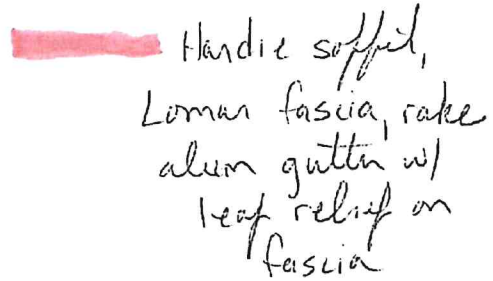 Hardie soffit,
Loman fascia, rake
alum gutter w/
leaf relief on
fascia